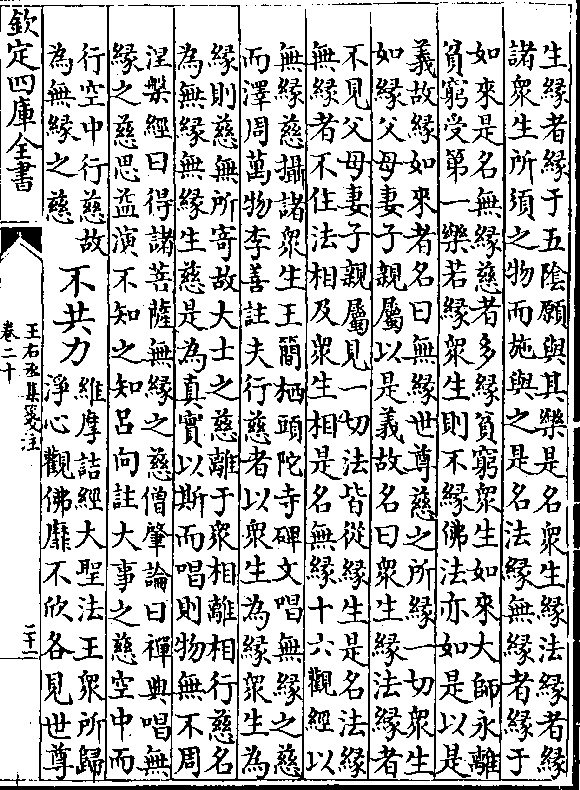 生緣者緣于五陰願與其樂是名衆生緣法緣者緣
諸衆生所須之物而施與之是名法緣無緣者緣于
如來是名無緣慈者多緣貧窮衆生如來大師永離
貧窮受第一樂若緣衆生則不緣佛法亦如是以是
義故緣如來者名曰無緣世尊慈之所緣一切衆生
如緣父母妻子親屬以是義故名曰衆生緣法緣者
不見父母妻子親屬見一切法皆從緣生是名法緣
無緣者不住法相及衆生相是名無緣十六觀經以
無緣慈攝諸衆生王簡栖頭陀寺碑文唱無緣之慈
而澤周萬物李善註夫行慈者以衆生為緣衆生為
緣則慈無所寄故大士之慈離于衆相離相行慈名
為無緣無緣生慈是為真實以斯而唱則物無不周
涅槃經曰得諸菩薩無緣之慈僧肇論曰禪典唱無
緣之慈思益演不知之知呂向註大事之慈空中而
行空中行慈故
為無緣之慈
不共力
維摩詰經大聖法王衆所歸
淨心觀佛靡不欣各見世尊
欽定四庫全書
王右丞集箋注
卷二十
二十二